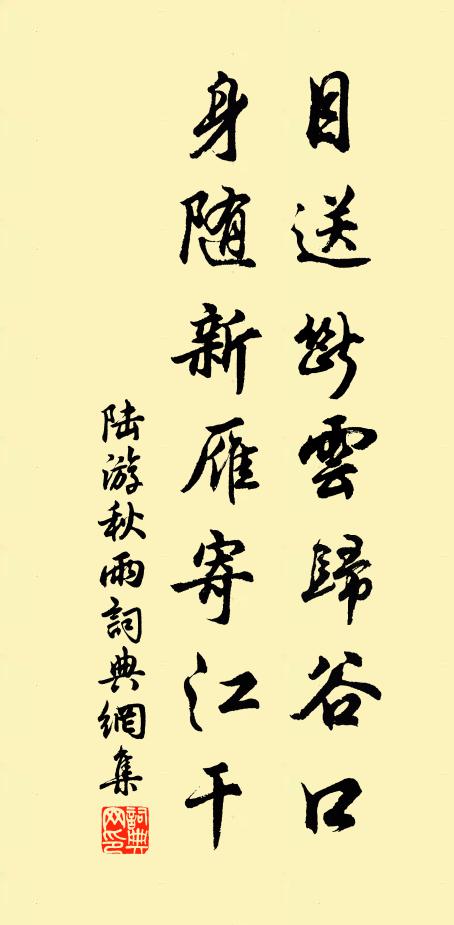 目送斷雲歸谷口
身随新雁寄江干
陆游秋雨詞典網集
詞典网印